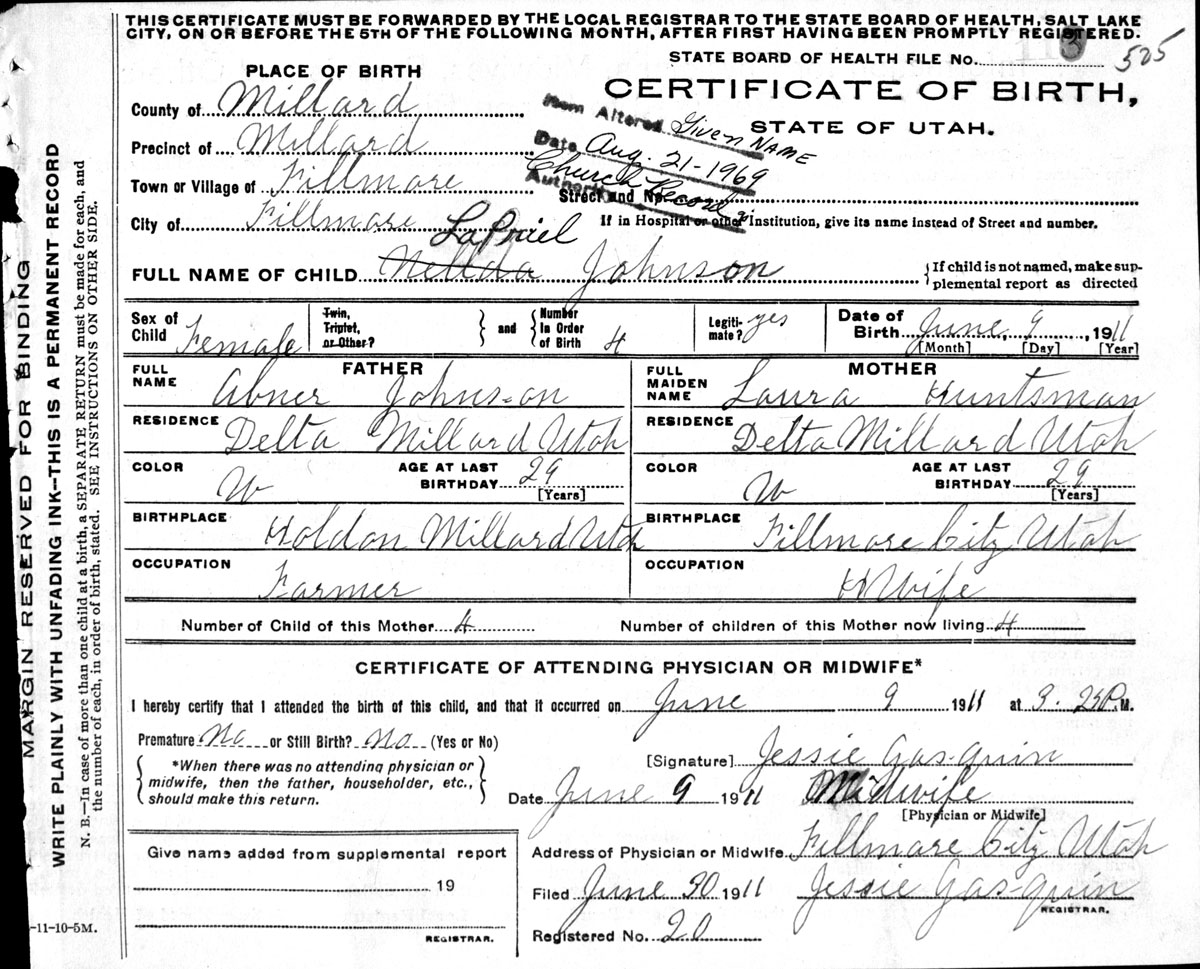 THIS CERTIFICATE MUST BE FORWARDED BY THE LOCAL REGISTRAR TO THE STATE BOARD OF HEALTH, SALT LAKE
CITY, ON OR BEFORE THE 5TH OF THE FOLLOWING MONTH, AFTER FIRST HAVING BEEN PROMPTLY REGISTERED.
STATE BOARD OF HEALTH FILE NO. 505
PLACE OF BIRTH
CERTIFICATE OF BIRTH,
STATE OF UTAH.
County of Millard
Item Altered Given NAME
Precinct of Millard
Date Aug. 21-1969
Town or Village of Fillmore
Church Record
Authority
Street and No.
City of Fillmore
If in Hospital or other Institution, give its name instead of Street and number.
LaPriel
FULL NAME OF CHILD Nellda Johnson
If child is not named, make sup-
plemental report as directed
Sex of Child Female
Twin, Triplet, or Other?
and
Number In Order of Birth 4
Legiti-mate? yes
Date of Birth June 9, 1911
[Month] [Day] [Year]
FATHER
FULL NAME Abner Johnson
RESIDENCE Delta Millard Utah
COLOR W
AGE AT LAST BIRTHDAY 29
[Years]
BIRTHPLACE Holdon Millard Utah
OCCUPATION Farmer
MOTHER
FULL MAIDEN NAME Laura Huntsman
RESIDENCE Delta Millard Utah
COLOR W
AGE AT LAST BIRTHDAY 29
[Years]
BIRTHPLACE Fillmore City Utah
OCCUPATION HWife
Number of Child of this Mother 4
Number of children of this Mother now living 4
CERTIFICATE OF ATTENDING PHYSICIAN OR MIDWIFE*
I hereby certify that I attended the birth of this child, and that it occurred on June 9 1911 at 3. P.M.
Premature No or Still Birth? No (Yes or No)
*When there was no attending physician or
midwife, then the father, householder, etc.,
should make this return.
[Signature] Jessie Gasquin
Date June 9 1911 Midwife
[Physician or Midwife]
Address of Physician or Midwife Fillmore City Utah
Filed June 30 1911 Jessie Gasquin
REGISTRAR.
Registered No. 20
Give name added from supplemental report
19
REGISTRAR.
-11-10-5M.
MARGIN RESERVED FOR BINDING
WRITE PLAINLY WITH UNFADING INK—THIS IS A PERMANENT RECORD
N. B.—In case of more than one child at a birth, a SEPARATE RETURN must be made for each, and
the number of each, in order of birth, stated. SEE INSTRUCTIONS ON OTHER SIDE.